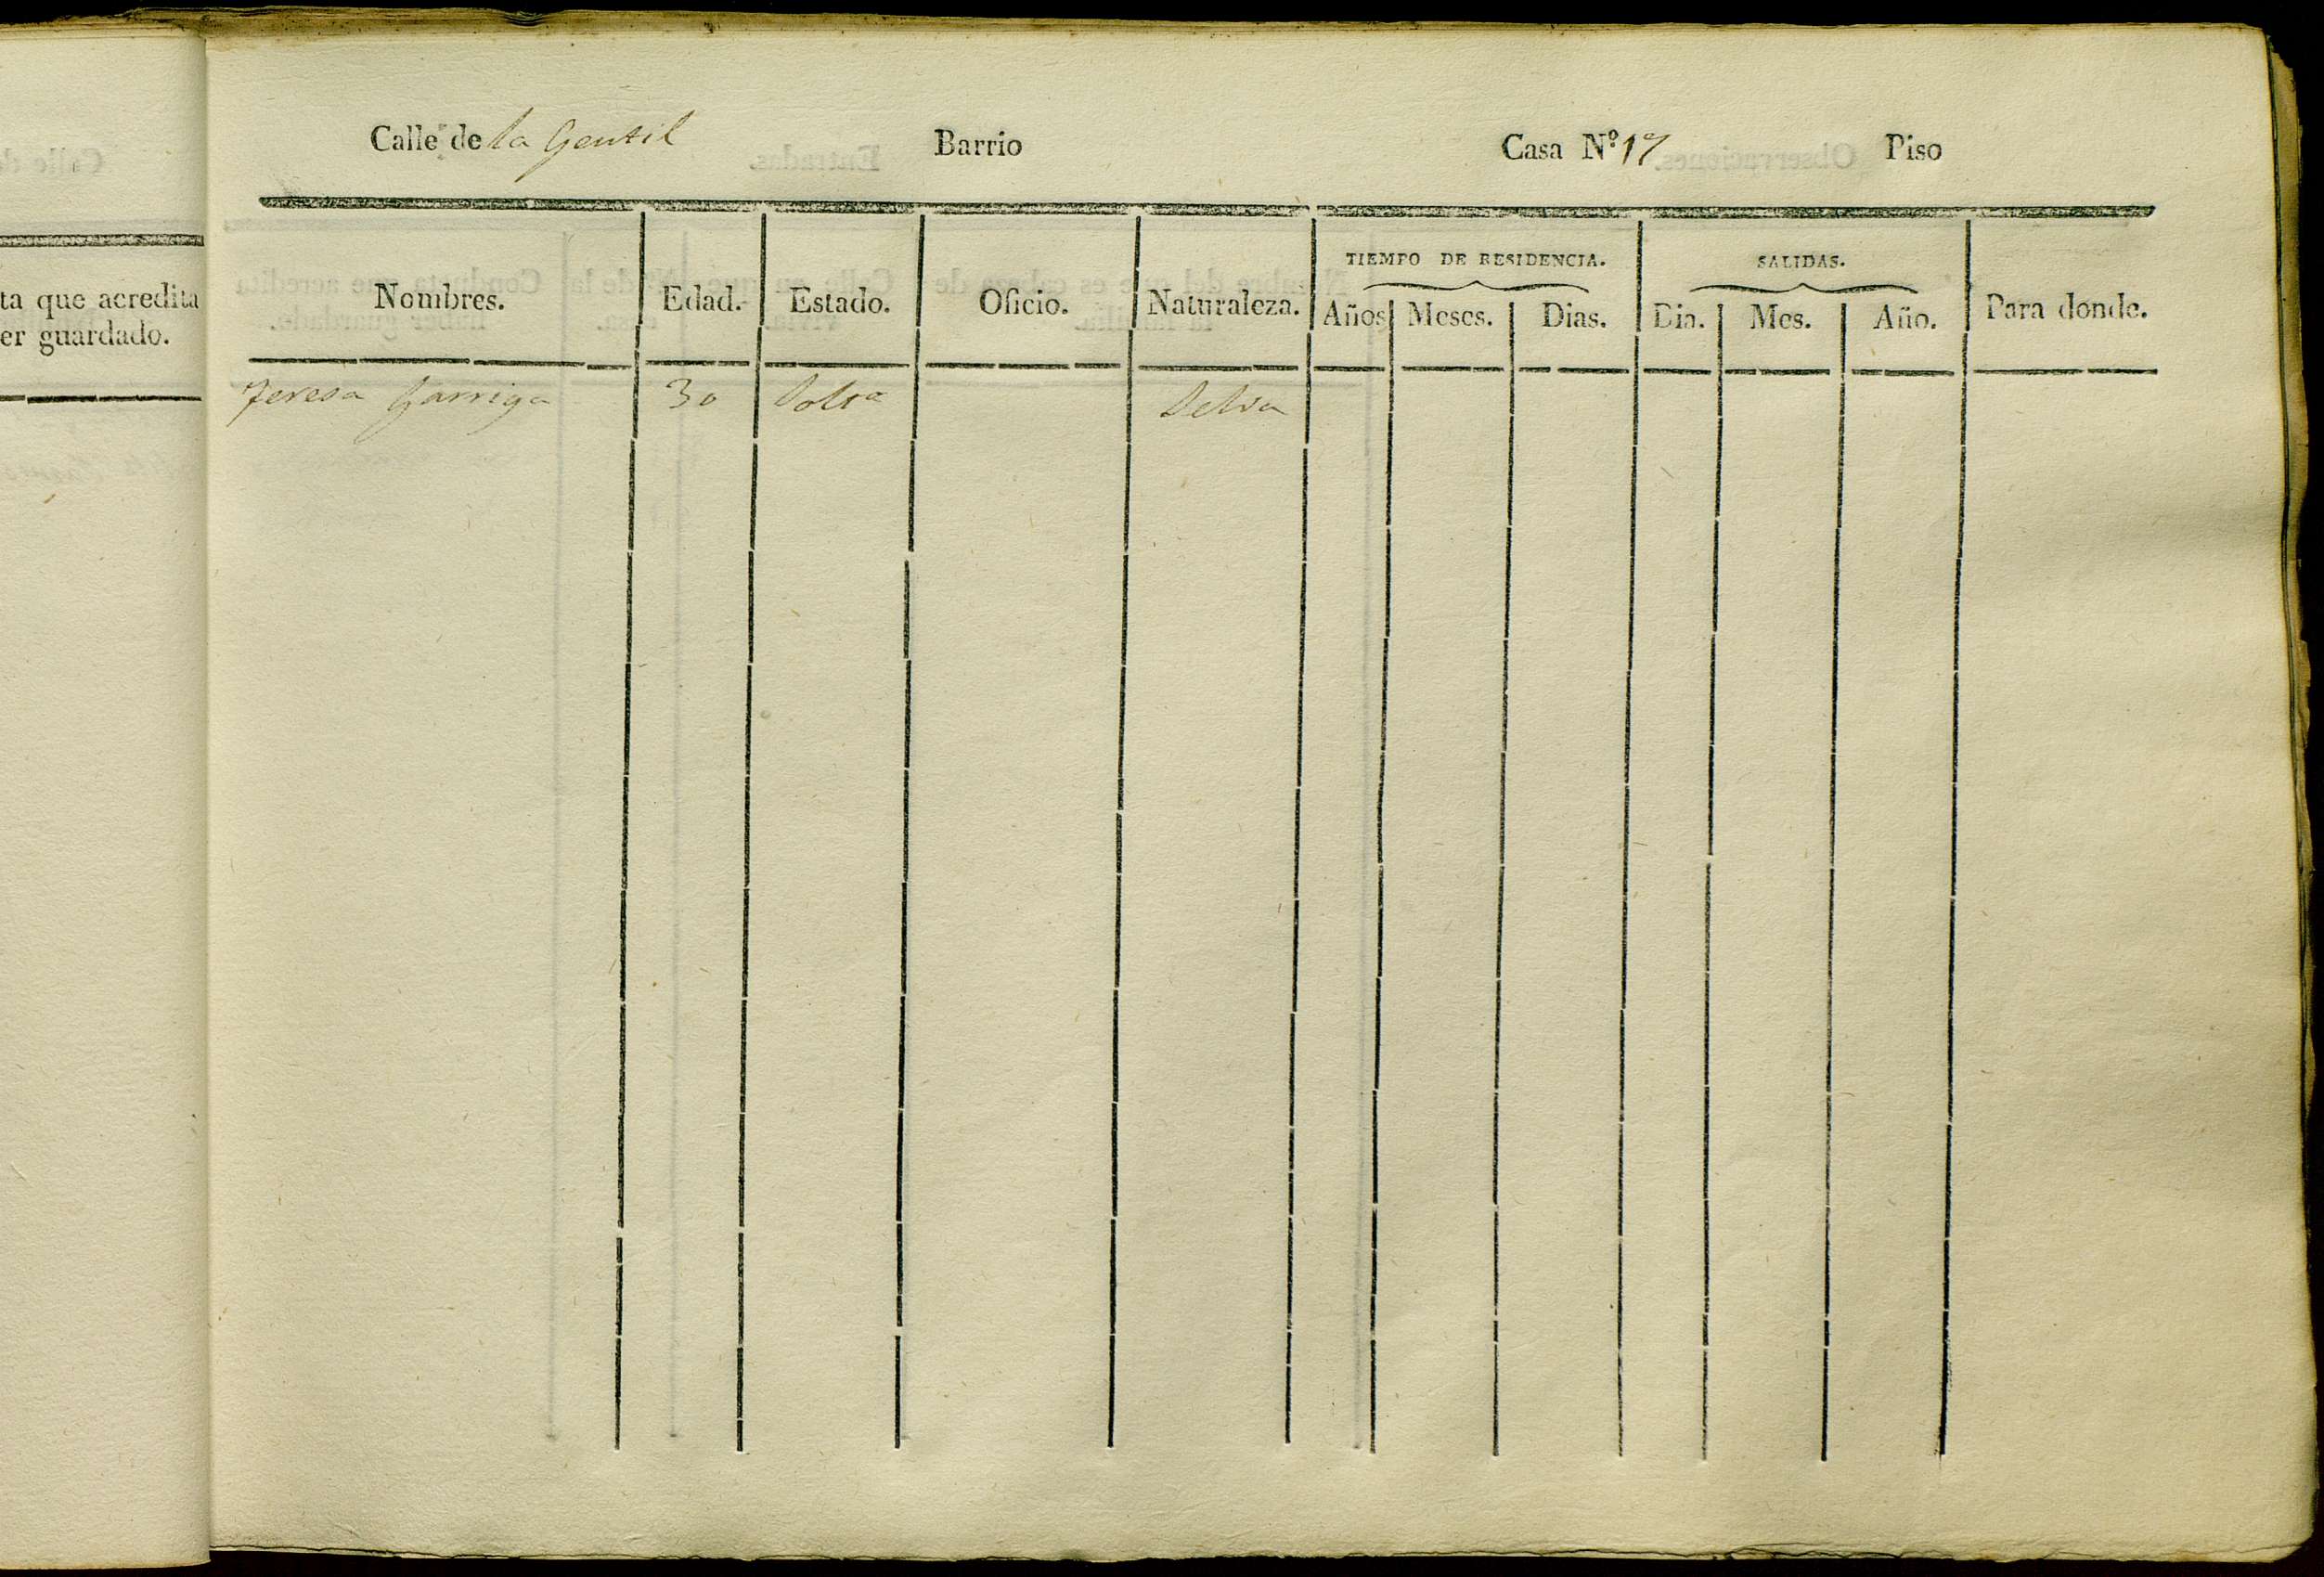 Calle de la Gentil Barrio Casa Nº 17 Piso
ta que acredita
er guardado.
TIEMPO DE RESIDENCIA. SALIDAS.
Nombres. Edad. Estado. Oficio. Naturaleza. Años Meses. Dias. Dia. Mes. Año. Para donde.
Teresa Garriga 30 Solta Selva